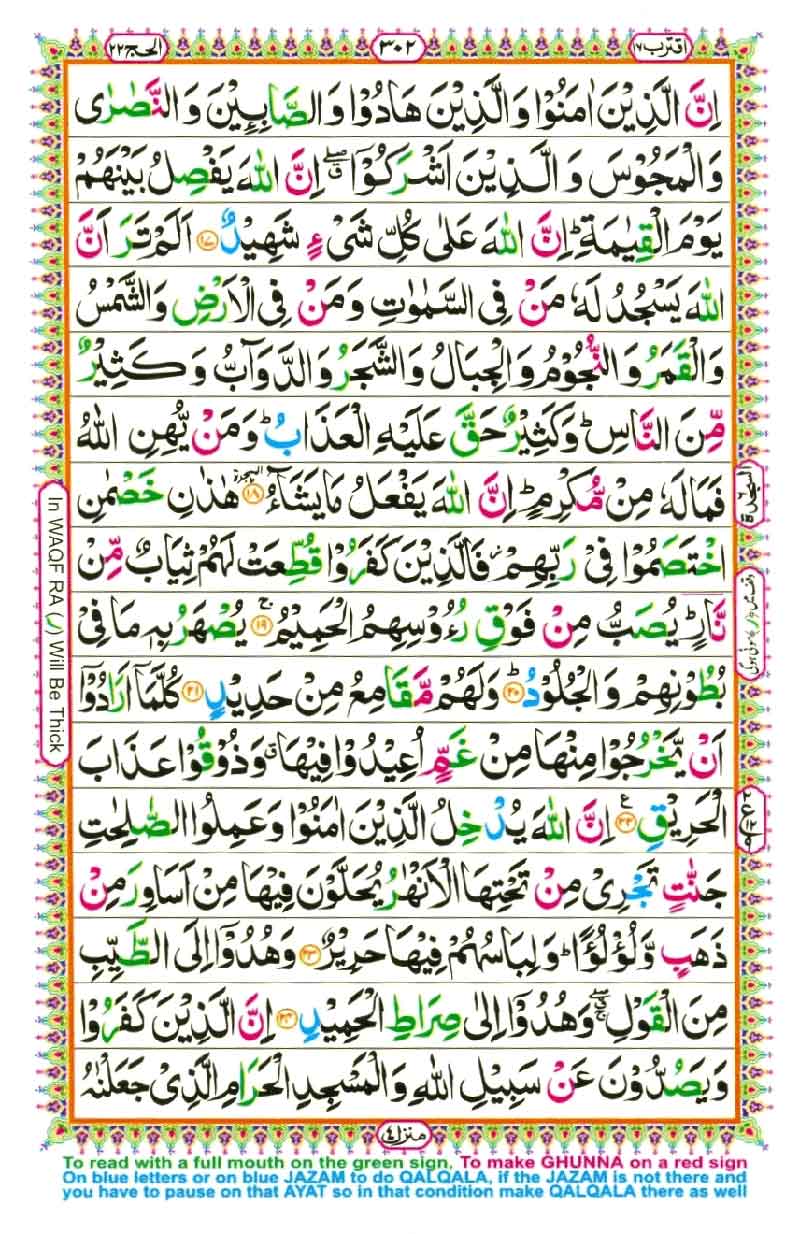 اقترب ١٧
٣٠٢
الحج ٢٢
اِنَّ الَّذِيْنَ اٰمَنُوْا وَ الَّذِيْنَ هَادُوْا وَ الصّٰابِـِٕيْنَ وَ النَّصٰرٰى
وَ الْمَجُوْسَ وَ الَّذِيْنَ اَشْرَكُوْۤا ۖۗ اِنَّ اللّٰهَ يَفْصِلُ بَيْنَهُمْ
يَوْمَ الْقِيٰمَةِ ؕ اِنَّ اللّٰهَ عَلٰى كُلِّ شَیْءٍ شَهِيْدٌ ﴿۱۷﴾ اَلَمْ تَرَ اَنَّ
اللّٰهَ يَسْجُدُ لَهٗ مَنْ فِی السَّمٰوٰتِ وَ مَنْ فِی الْاَرْضِ وَ الشَّمْسُ
وَ الْقَمَرُ وَ النُّجُوْمُ وَ الْجِبَالُ وَ الشَّجَرُ وَ الدَّوَآبُّ وَ كَثِيْرٌ
مِّنَ النَّاسِ ؕ وَ كَثِيْرٌ حَقَّ عَلَيْهِ الْعَذَابُ ؕ وَ مَنْ يُّهِنِ اللّٰهُ
فَمَا لَهٗ مِنْ مُّكْرِمٍ ؕ اِنَّ اللّٰهَ يَفْعَلُ مَا يَشَآءُ ﴿۱۸﴾ هٰذٰنِ خَصْمٰنِ
اخْتَصَمُوْا فِیْ رَبِّهِمْ ؗ فَالَّذِيْنَ كَفَرُوْا قُطِّعَتْ لَهُمْ ثِيَابٌ مِّنْ
نَّارٍ ؕ يُصَبُّ مِنْ فَوْقِ رُءُوْسِهِمُ الْحَمِيْمُ ﴿۱۹﴾ۚ يُصْهَرُ بِهٖ مَا فِیْ
بُطُوْنِهِمْ وَ الْجُلُوْدُ ﴿۲۰﴾ؕ وَ لَهُمْ مَّقَامِعُ مِنْ حَدِيْدٍ ﴿۲۱﴾ كُلَّمَاۤ اَرَادُوْۤا
اَنْ يَّخْرُجُوْا مِنْهَا مِنْ غَمٍّ اُعِيْدُوْا فِيْهَا ۗ وَ ذُوْقُوْا عَذَابَ
الْحَرِيْقِ ﴿۲۲﴾ اِنَّ اللّٰهَ يُدْخِلُ الَّذِيْنَ اٰمَنُوْا وَ عَمِلُوا الصّٰلِحٰتِ
جَنّٰتٍ تَجْرِیْ مِنْ تَحْتِهَا الْاَنْهٰرُ يُحَلَّوْنَ فِيْهَا مِنْ اَسَاوِرَ مِنْ
ذَهَبٍ وَّ لُؤْلُؤًا ؕ وَ لِبَاسُهُمْ فِيْهَا حَرِيْرٌ ﴿۲۳﴾ وَ هُدُوْۤا اِلَی الطَّيِّبِ
مِنَ الْقَوْلِ ۖۚ وَ هُدُوْۤا اِلٰى صِرَاطِ الْحَمِيْدِ ﴿۲۴﴾ اِنَّ الَّذِيْنَ كَفَرُوْا
وَ يَصُدُّوْنَ عَنْ سَبِيْلِ اللّٰهِ وَ الْمَسْجِدِ الْحَرَامِ الَّذِیْ جَعَلْنٰهُ
السجدة
In WAQF RA (ر) Will Be Thick
منزل ٤
To read with a full mouth on the green sign, To make GHUNNA on a red sign
On blue letters or on blue JAZAM to do QALQALA, if the JAZAM is not there and
you have to pause on that AYAT so in that condition make QALQALA there as well